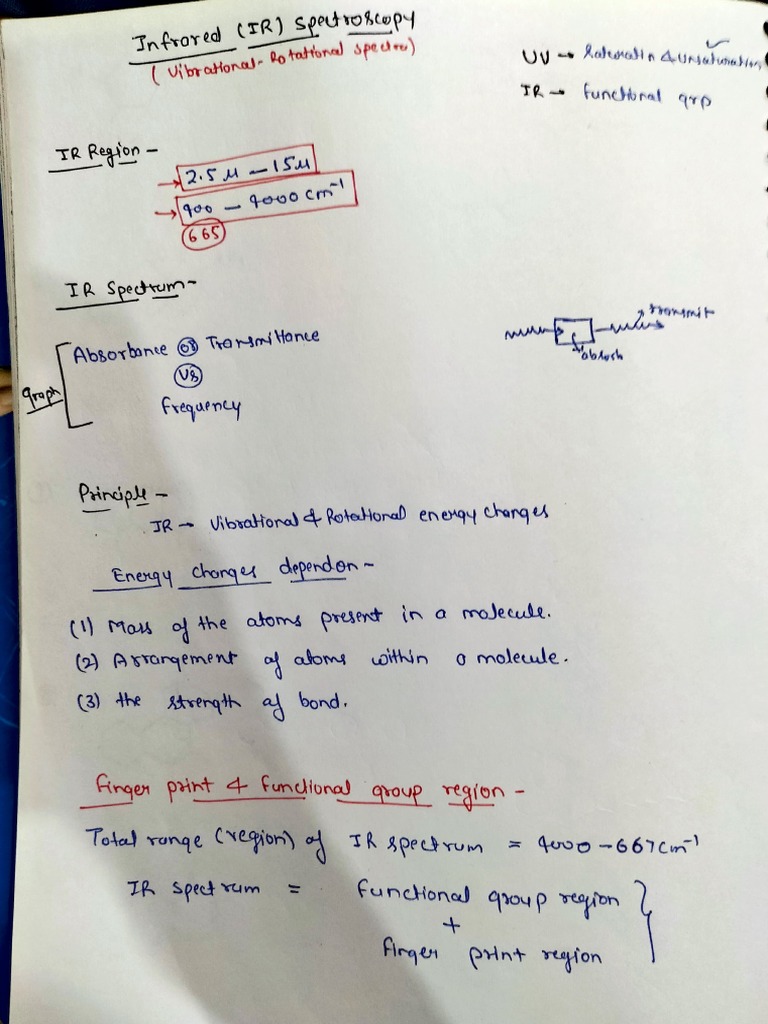 Infrared (IR) Spectroscopy
(Vibrational-Rotational spectra)
UV → Saturation & Unsaturation
IR → functional grp
IR Region -
→ 2.5 μ - 15 μ
→ 400 - 4000 cm⁻¹
665
IR Spectrum -
Absorbance or Transmittance
Vs
frequency
Graph
transmit
absorb
Principle -
IR → Vibrational & Rotational energy changes
Energy changes depend on -
(1) Mass of the atoms present in a molecule.
(2) Arrangement of atoms within a molecule.
(3) the strength of bond.
Finger print & functional group region -
Total range (region) of IR spectrum = 4000 - 667 cm⁻¹
IR spectrum = functional group region
+
finger print region